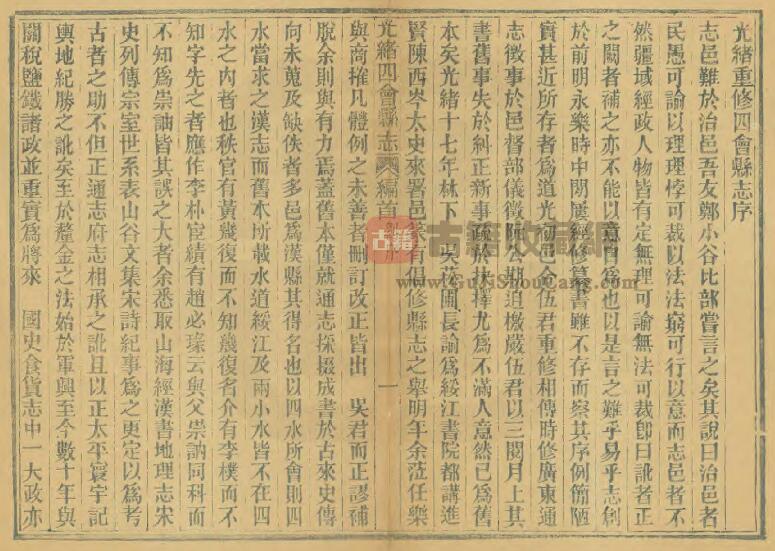 光緒重修四會縣志序
志邑難於治邑吾友鄭小谷比部嘗言之矣其說曰治邑者
民愚可諭以理理悖可裁以法法窮可行以意而志邑者不
然疆域經政人物皆有定無理可諭無法可裁卽曰訛者正
之闕者補之亦不能以意自爲也以是言之難乎易乎志創
於前明永樂時中間屢經修纂書雖不存而察其序例簡陋
實甚近所存者爲道光初邑令伍君重修相傳時修廣東通
志徵事於邑督部儀徵阮公期迫檄嚴伍君以三閱月上其
書舊事失於糾正新事疏於抉擇尤爲不滿人意然已爲舊
本矣光緒十七年林下 吳荍圃長諭爲綏江書院都講進
賢陳西岑太史來署邑篆有倡修縣志之舉明年余蒞任樂
光緒四會縣志 編首 一
與商搉凡體例之未善者刪訂改正皆出 吳君而正謬補
脫余則與有力焉蓋舊本僅就通志採掇成書於古來史傳
向未蒐及缺佚者多邑爲漢縣其得名也以四水所會則四
水當求之漢志而舊本所載水道綏江及兩小水皆不在四
水之內者也秩官有黃幾復而不知幾復名介有李樸而不
知字先之者應作李朴宦績有趙必𤩪云與父崇訥同科而
不知爲崇詘皆其誤之大者余悉取山海經漢書地理志宋
史列傳宗室世系表山谷文集宋詩紀事爲之更定以爲考
古者之助不但正通志府志相承之訛且以正太平寰宇記
輿地紀勝之訛矣至於釐金之法始於軍興至今數十年與
關稅鹽鐵諸政並重實爲將來 國史食貨志中一大政亦
古籍收藏網
www.GuJiShouCang.com